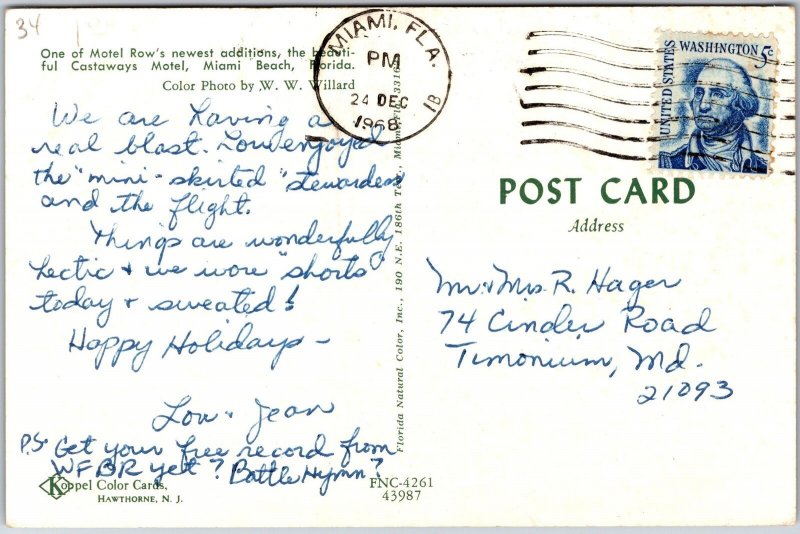 34
One of Motel Row's newest additions, the beauti-
ful Castaways Motel, Miami Beach, Florida.
Color Photo by W. W. Willard
We are having a
real blast. Lou enjoyed
the "mini-skirted" stewardess
and the flight.
Things are wonderfully
hectic & we wore "shorts"
today & sweated!
Happy Holidays -
Lou & Jean
P.S. Get your free record from
WFBR yet? Battle Hymn?
Koppel Color Cards,
HAWTHORNE, N. J.
Florida Natural Color, Inc., 190 N.E. 186th Terr., Miami, 
FNC-4261
43987
MIAMI, FLA.
PM
24 DEC
1968
1B
UNITED STATES
WASHINGTON 5c
POST CARD
Address
Mr. & Mrs. R. Hager
74 Cinder Road
Timonium, Md.
21093